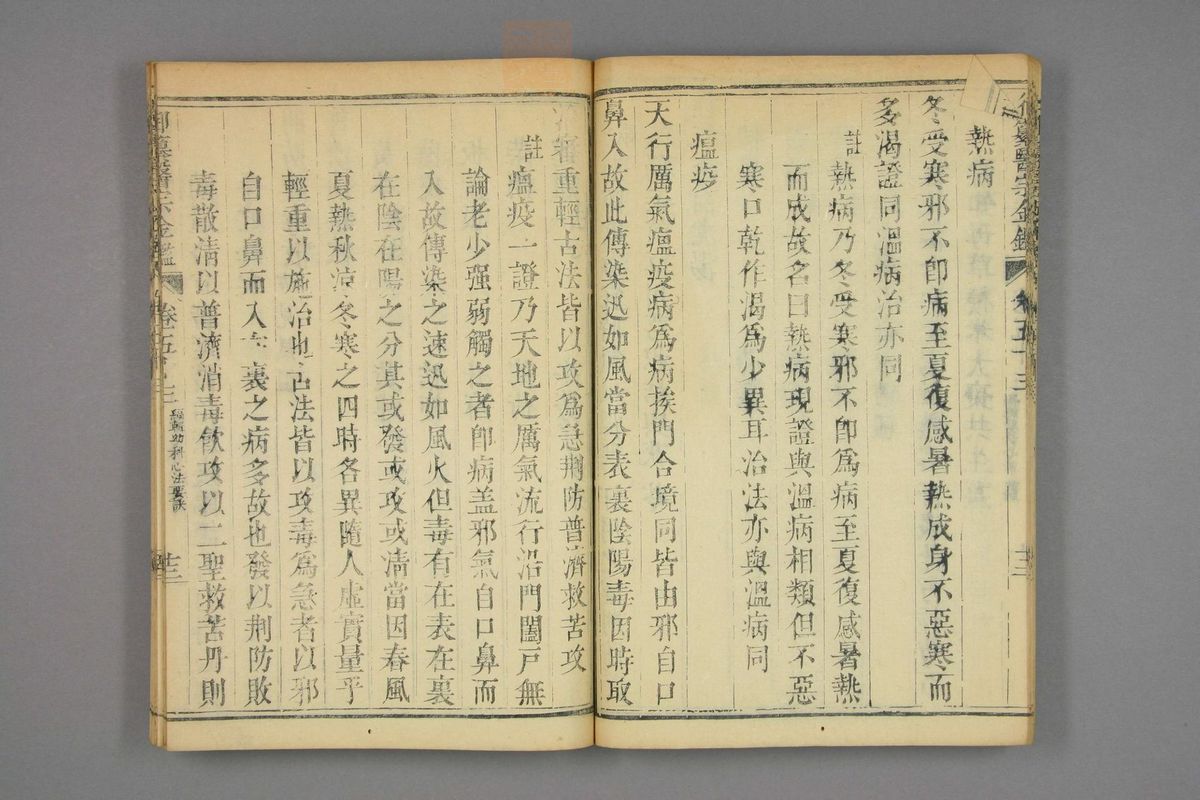 熱病
冬受寒邪不卽病至夏復感暑熱成身不惡寒而
多渴證同溫病治亦同
註 熱病乃冬受寒邪不卽爲病至夏復感暑熱
而成故名曰熱病現證與溫病相類但不惡
寒口乾作渴爲少異耳治法亦與溫病同
瘟疫
天行厲氣瘟疫病爲病挨門合境同皆由邪自口
鼻入故此傳染迅如風當分表裏陰陽毒因時取
審重輕古法皆以攻爲急荆防普濟救苦攻
註瘟疫一證乃天地之厲氣流行沿門闔戶無
論老少强弱觸之者卽病盖邪氣自口鼻而
入故傳染之速迅如風火但毒有在表在裏
在陰在陽之分其或發或攻或清當因春風
夏熱秋凉冬寒之四時各異隨人虛實量乎
輕重以施治也古法皆以攻毒爲急者以邪
自口鼻而入在裏之病多故也發以荆防敗
毒散清以普濟消毒飮攻以二聖救苦丹則
御纂醫宗金鑑 卷五十三 編輯幼科心法要訣